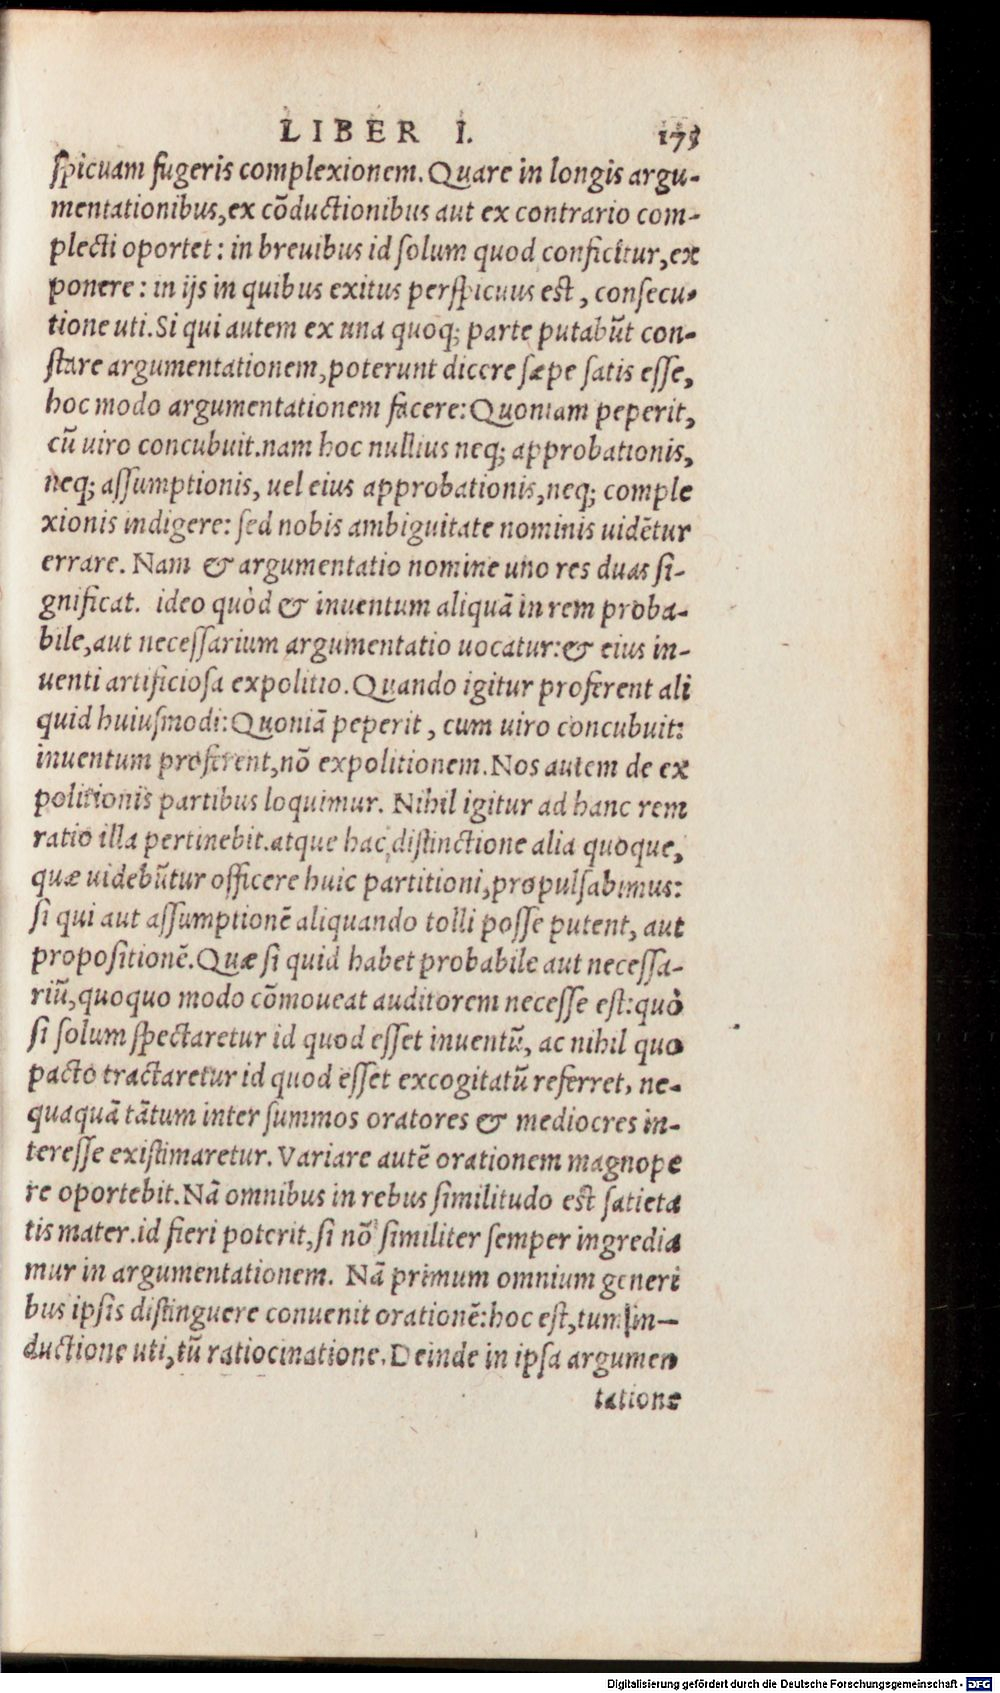 LIBER I. 173
spicuam fugeris complexionem. Quare in longis argu-
mentationibus, ex cōductionibus aut ex contrario com-
plecti oportet: in brevibus id solum quod conficitur, ex
ponere: in ijs in quibus exitus perspicuus est, consecu-
tione uti. Si qui autem ex una quoq; parte putabūt con-
stare argumentationem, poterunt dicere sæpe satis esse,
hoc modo argumentationem facere: Quoniam peperit,
cū viro concubuit. nam hoc nullius neq; approbationis,
neq; assumptionis, uel eius approbationis, neq; comple
xionis indigere: sed nobis ambiguitate nominis uidētur
errare. Nam & argumentatio nomine uno res duas si-
gnificat. ideo quòd & inventum aliquā in rem proba-
bile, aut necessarium argumentatio vocatur: & eius in-
venti artificiosa expolitio. Quando igitur proferent ali
quid huiusmodi: Quoniā peperit, cum viro concubuit:
inventum proferent, nō expolitionem. Nos autem de ex
politionis partibus loquimur. Nihil igitur ad hanc rem
ratio illa pertinebit. atque hac distinctione alia quoque,
quæ videbūtur officere huic partitioni, propulsabimus:
si qui aut assumptionē aliquando tolli posse putent, aut
propositionē. Quæ si quid habet probabile aut necessa-
riū, quoquo modo cōmoveat auditorem necesse est: quò
si solum spectaretur id quod esset inventū, ac nihil quo
pacto tractaretur id quod esset excogitatū referret, ne-
quaquā tātum inter summos oratores & mediocres in-
teresse existimaretur. Variare autē orationem magnope
re oportebit. Nā omnibus in rebus similitudo est satieta
tis mater. id fieri poterit, si nō similiter semper ingredia
mur in argumentationem. Nā primum omnium generi
bus ipsis distinguere convenit orationē: hoc est, tum in-
ductione uti, tū ratiocinatione. Deinde in ipsa argumen
tatione
Digitalisierung gefördert durch die Deutsche Forschungsgemeinschaft - DFG